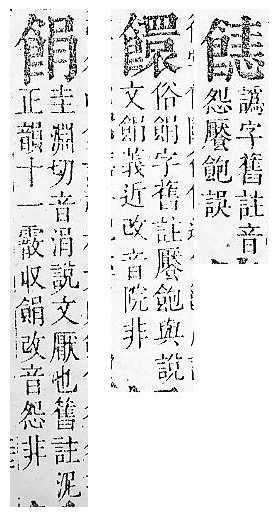 譌字舊註音
怨饜飽誤
俗䬼字舊註饜飽與說
文䬼義近改音院非
䬼
圭淵切音涓說文厭也舊註泥
正韻十一霰收䬼改音怨非